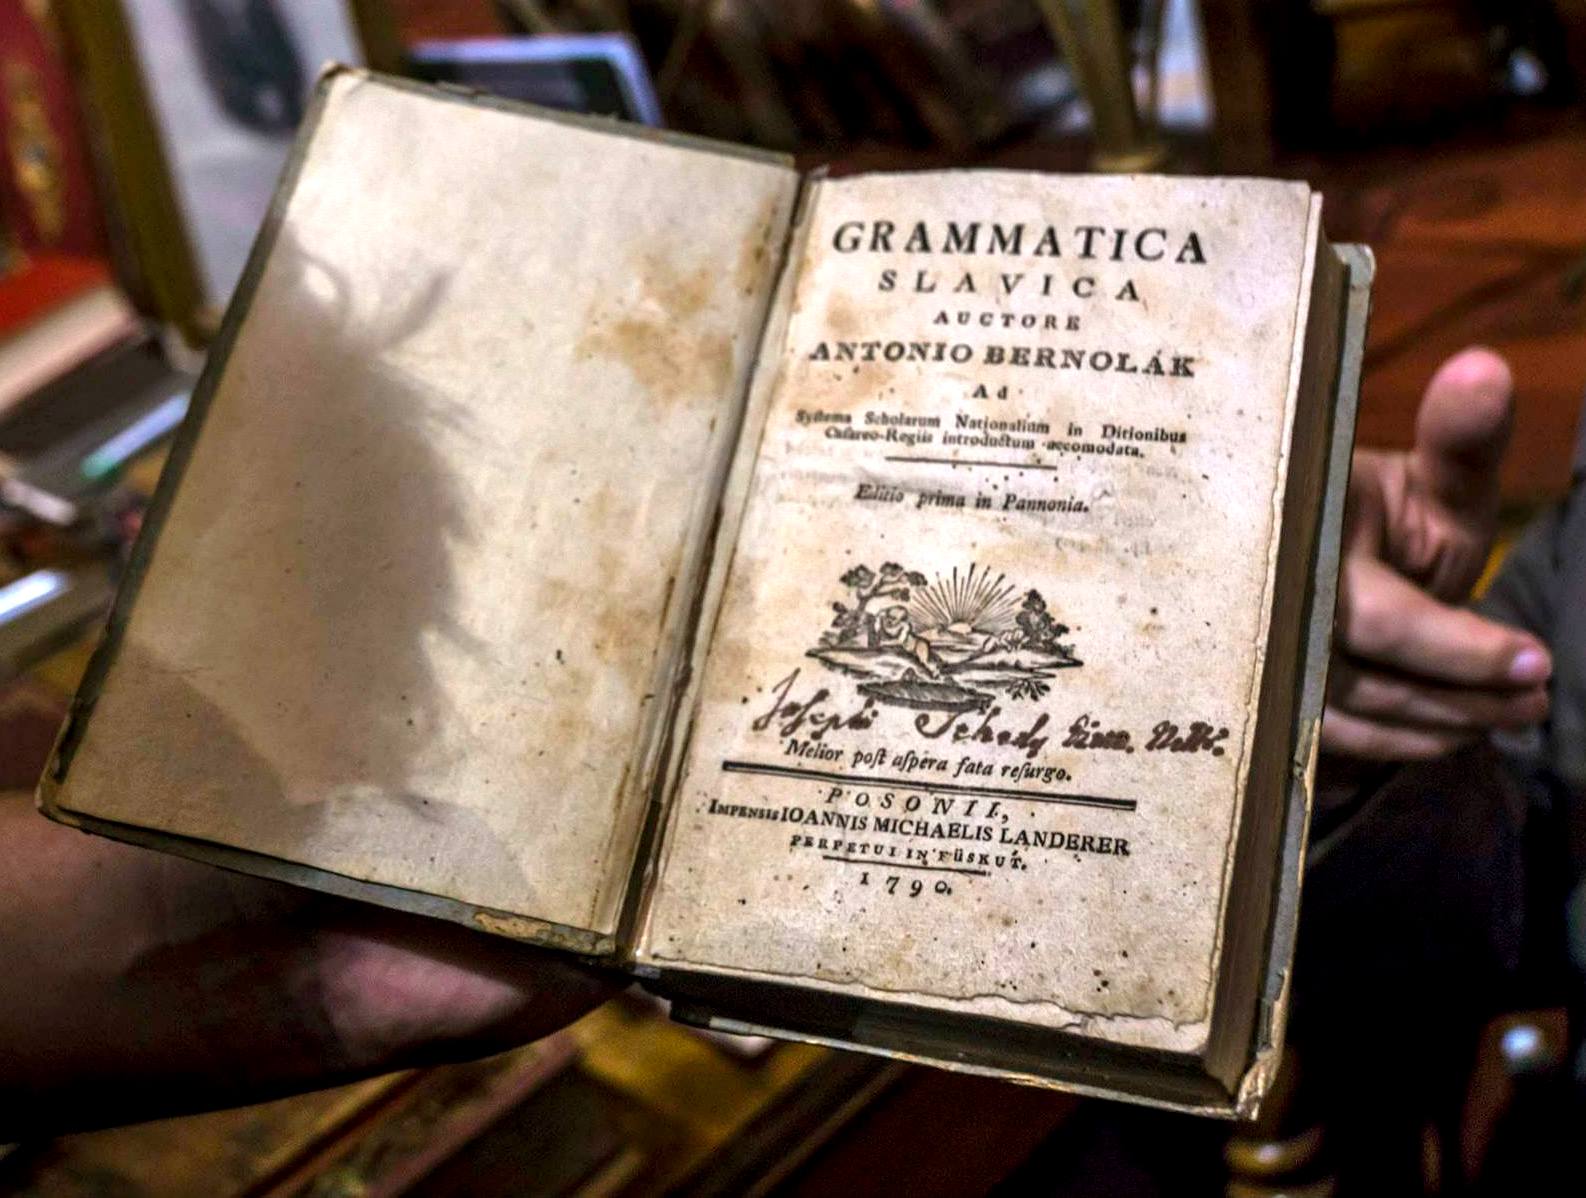 GRAMMATICA
SLAVICA
AUCTORE
ANTONIO BERNOLÁK
Ad
Syſtema Scholarum Nationalium in Ditionibus
Cæſareo-Regiis introductum accomodata.
Editio prima in Pannonia.
Josephi Schedy
Melior poſt aſpera fata reſurgo.
POSONII,
IMPENSIS IOANNIS MICHAELIS LANDERER
PERPETUI IN FÜSKUT.
1790.